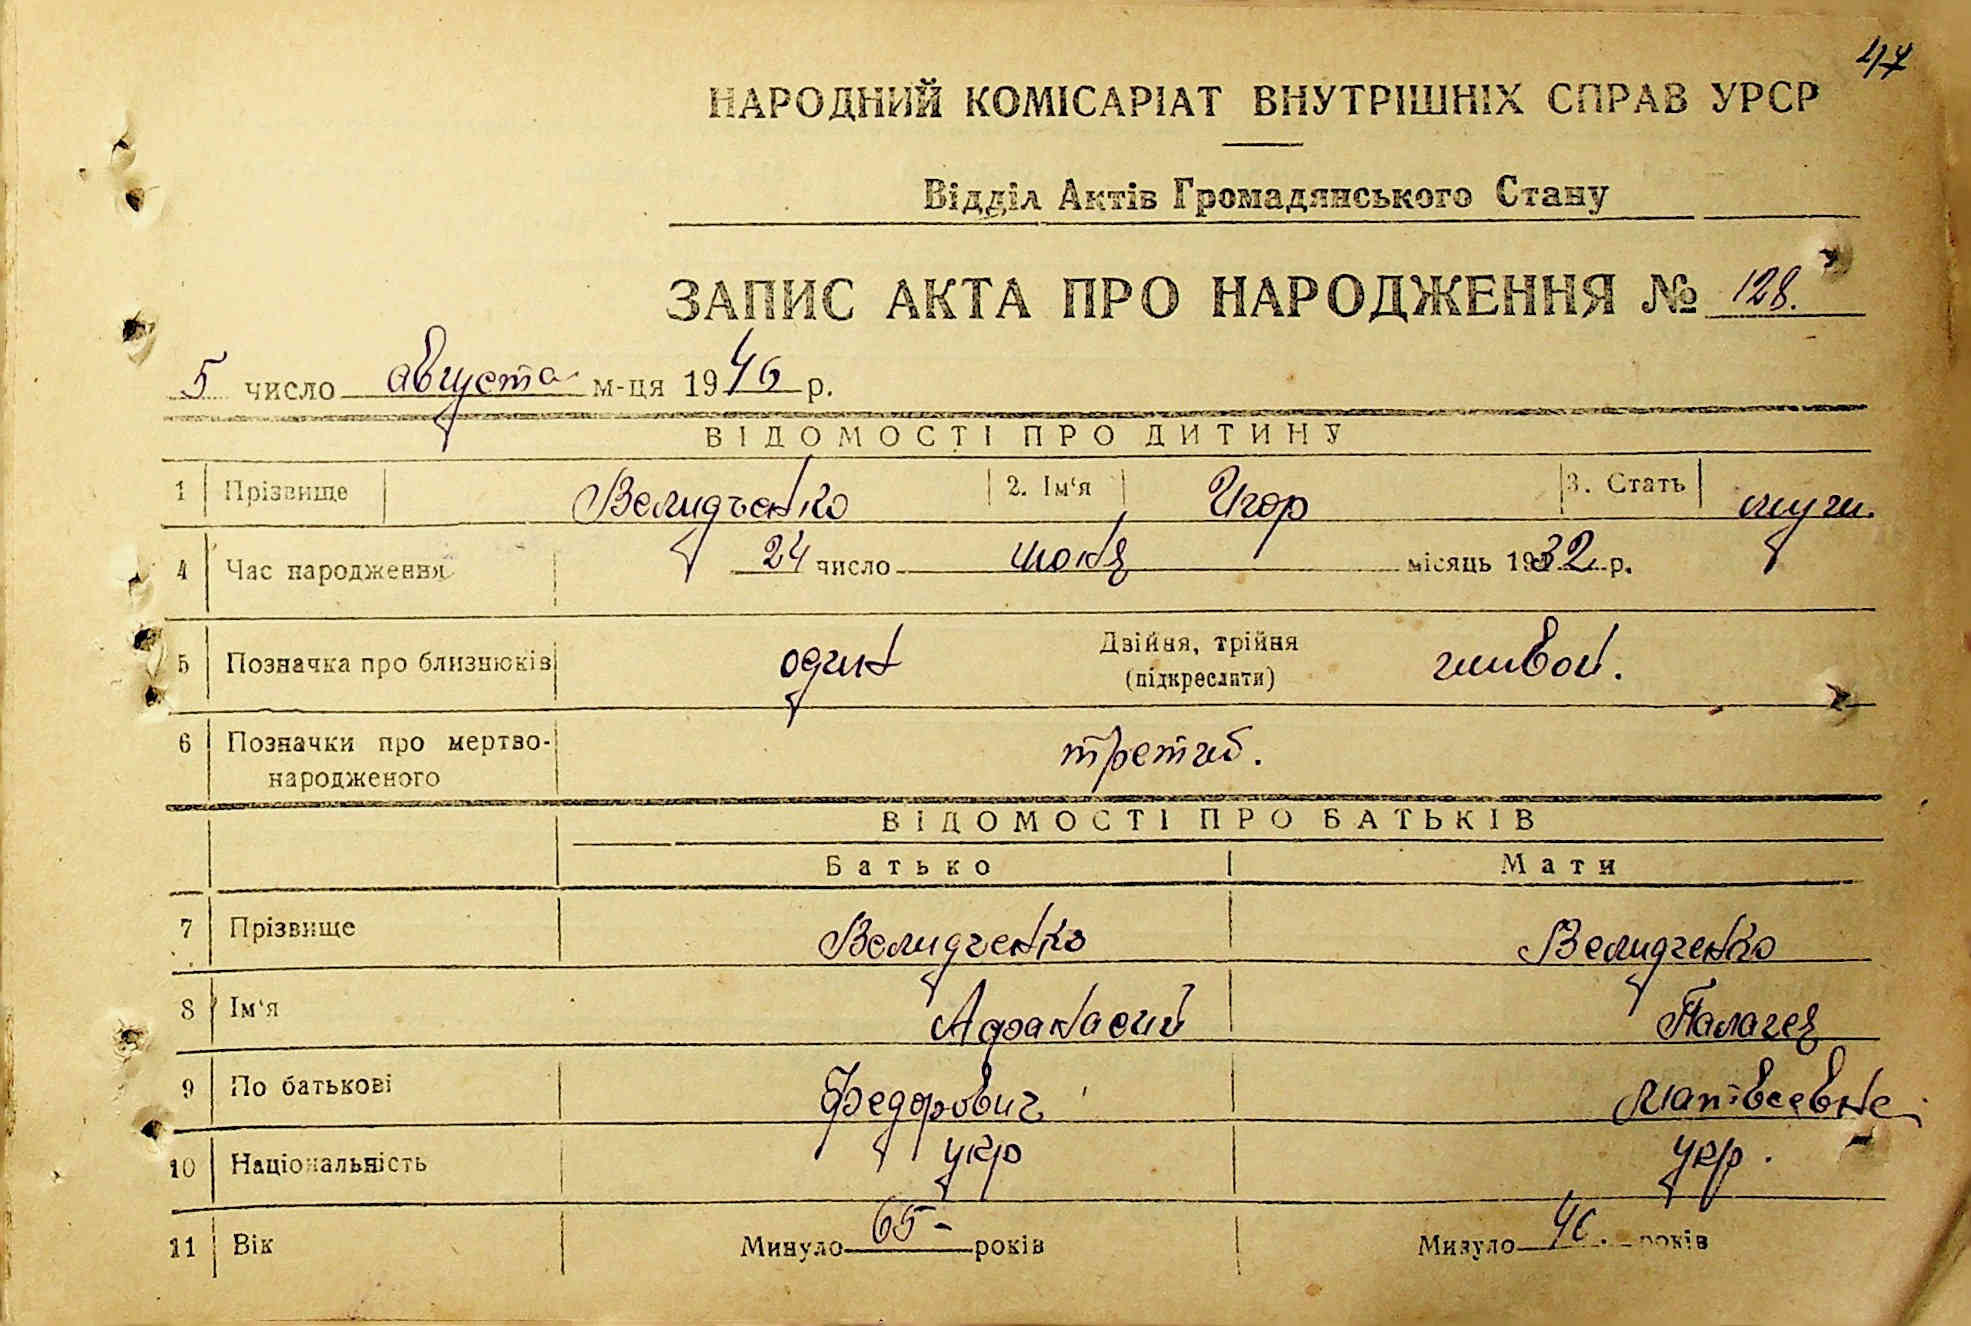 47
НАРОДНИЙ КОМІСАРІАТ ВНУТРІШНІХ СПРАВ УРСР
Відділ Актів Громадянського Стану
ЗАПИС АКТА ПРО НАРОДЖЕННЯ № 128.
5 число августа м-ця 1946 р.
ВІДОМОСТІ ПРО ДИТИНУ
1 Прізвище Велидченко 2. Ім'я Игор 3. Стать муж.
4 Час народження 24 число июня місяць 1932 р.
5 Позначка про близнюків один Двійня, трійня (підкреслити) живой.
6 Позначки про мертво-
народженого третий.
ВІДОМОСТІ ПРО БАТЬКІВ
Батько Мати
7 Прізвище Велидченко Велидченко
8 Ім'я Афанасий Палагея
9 По батькові Федорович Матвеевна
10 Національність укр укр.
11 Вік Минуло 65 років Минуло років